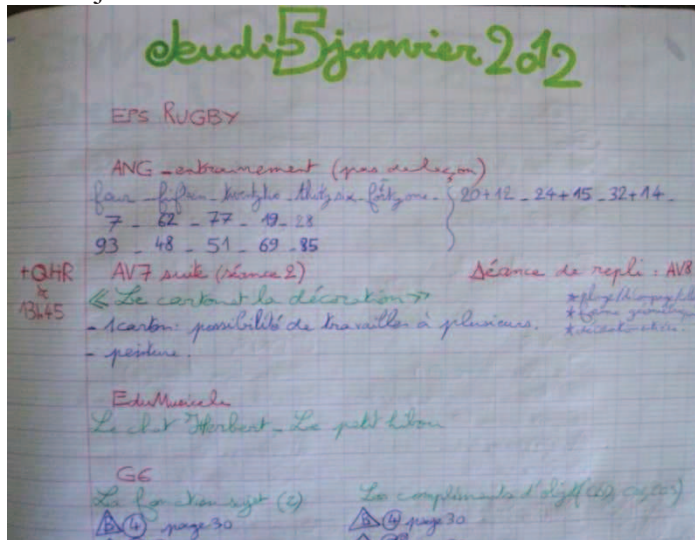 Jeudi 5 janvier 2012
EPS RUGBY
ANG - entrainement (pas de leçon)
four - fifteen - twenty two - thirty six - forty one - 20+12 - 24+15 - 32+14 -
7 - 62 - 77 - 19 - 28
93 - 48 - 51 - 69 - 85
+QHR
13h45
AV7 suite (séance 2) Séance de repli : AV8
« Le carton et la décoration »
- 1 carton : possibilité de travailler à plusieurs.
- peinture.
Edu Musicale
Le chat Herbert - Le petit hibou
G6
La fonction sujet (2) Les compléments d'objet
B 4 page 30 B 4 page 30